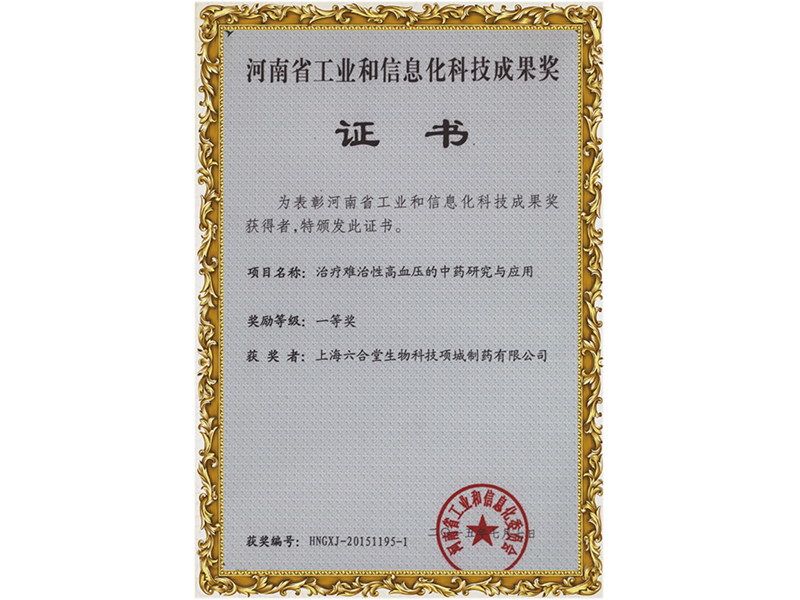 河南省工业和信息化科技成果奖
证 书
为表彰河南省工业和信息化科技成果奖
获得者,特颁发此证书。
项目名称: 治疗难治性高血压的中药研究与应用
奖励等级: 一等奖
获 奖 者: 上海六合堂生物科技项城制药有限公司
河南省工业和信息化委员会
二〇一五年七月七日
获奖编号: HNGXJ-20151195-1